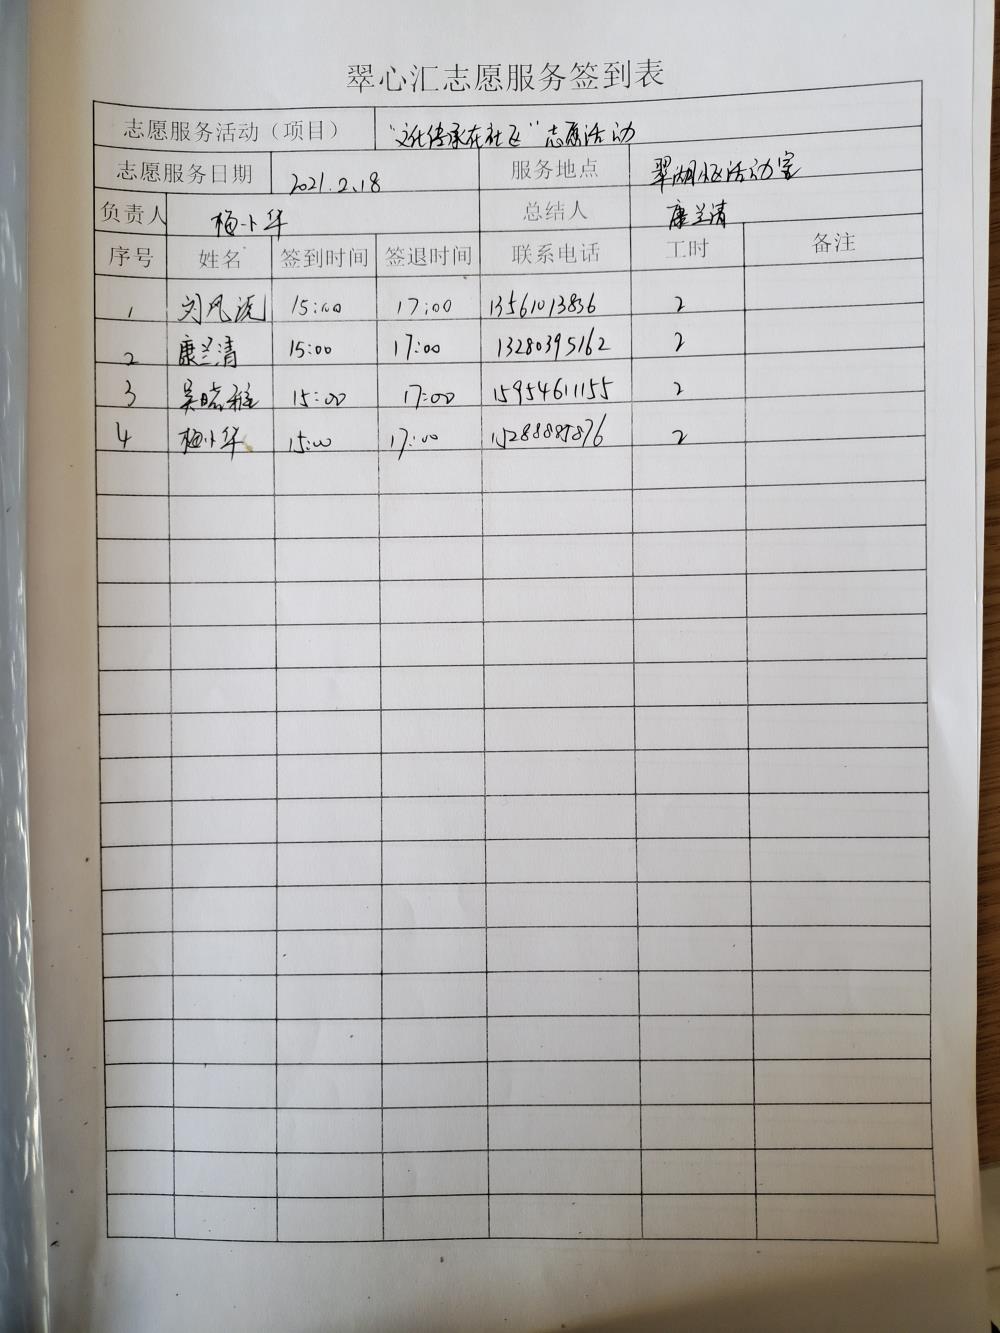 翠心汇志愿服务签到表
志愿服务活动（项目） “文化传承在社区”志愿活动
志愿服务日期 2021.2.18 服务地点 翠湖社区活动室
负责人 梅小华 总结人 康兰清
序号 姓名 签到时间 签退时间 联系电话 工时 备注
1 刘风 15:00 17:00 13561013836 2
2 康兰清 15:00 17:00 13280395162 2
3 吴晓 15:00 17:00 15954611155 2
4 梅小华 15:00 17:00 2